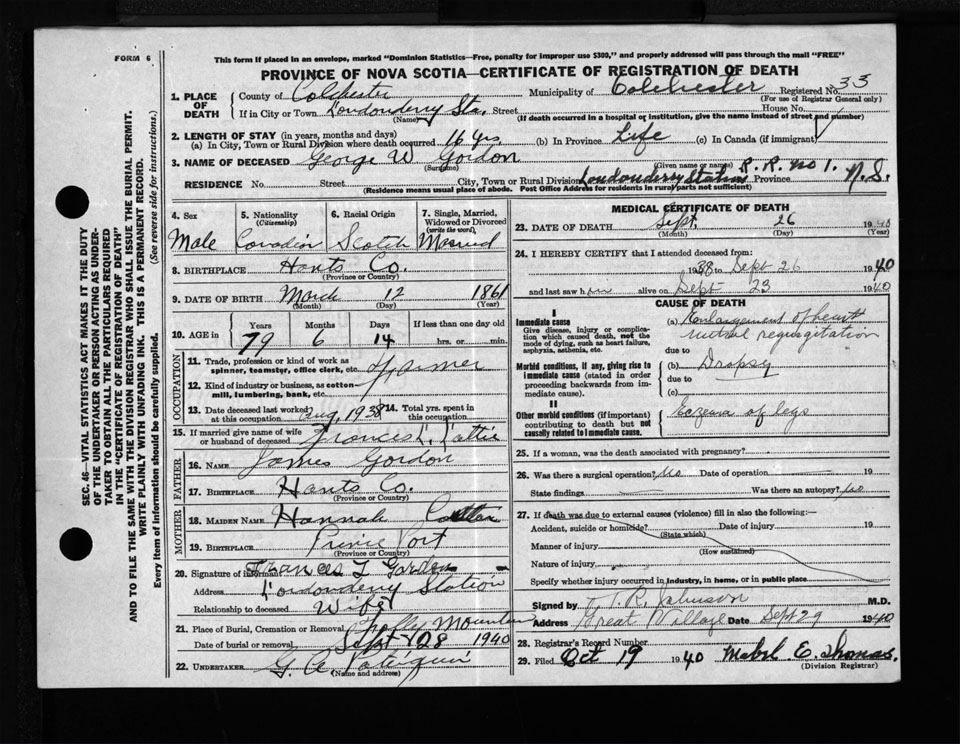 FORM 6
This form if placed in an envelope, marked "Dominion Statistics—Free, penalty for improper use $300," and properly addressed will pass through the mail "FREE"
PROVINCE OF NOVA SCOTIA—CERTIFICATE OF REGISTRATION OF DEATH
SEC. 46—VITAL STATISTICS ACT MAKES IT THE DUTY
OF THE UNDERTAKER OR PERSON ACTING AS UNDER-
TAKER TO OBTAIN ALL THE PARTICULARS REQUIRED
IN THE "CERTIFICATE OF REGISTRATION OF DEATH"
AND TO FILE THE SAME WITH THE DIVISION REGISTRAR WHO SHALL ISSUE THE BURIAL PERMIT.
WRITE PLAINLY WITH UNFADING INK. THIS IS A PERMANENT RECORD.
Every item of information should be carefully supplied. (See reverse side for instructions.)
1. PLACE OF DEATH County of Colchester Municipality of Colchester Registered No. 33
(For use of Registrar General only)
If in City or Town Londonderry Sta. Street House No.
(Name) (If death occurred in a hospital or institution, give the name instead of street and number)
2. LENGTH OF STAY (in years, months and days)
(a) In City, Town or Rural Division where death occurred 16 yrs. (b) In Province Life (c) In Canada (if immigrant)
3. NAME OF DECEASED George W Gordon
(Surname) (Given name or names) R. R. no 1.
RESIDENCE No. Street City, Town or Rural Division Londonderry Station Province N.S.
(Residence means usual place of abode. Post Office Address for residents in rural parts not sufficient)
4. Sex Male
5. Nationality (Citizenship) Canadian
6. Racial Origin Scotch
7. Single, Married, Widowed or Divorced (write the word) Married
8. BIRTHPLACE Hants Co.
(Province or Country)
9. DATE OF BIRTH March 12 1861
(Month) (Day) (Year)
10. AGE in Years 79 Months 6 Days 14 If less than one day old hrs. or min.
OCCUPATION
11. Trade, profession or kind of work as spinner, teamster, office clerk, etc. Farmer
12. Kind of industry or business, as cotton mill, lumbering, bank, etc.
13. Date deceased last worked at this occupation Aug, 1938 14. Total yrs. spent in this occupation
15. If married give name of wife or husband of deceased Frances L. Lattie
FATHER
16. NAME James Gordon
17. BIRTHPLACE Hants Co.
(Province or Country)
MOTHER
18. MAIDEN NAME Hannah
19. BIRTHPLACE Prince Port
(Province or Country)
20. Signature of informant Frances L Gordon
Address Londonderry Station
Relationship to deceased Wife
21. Place of Burial, Cremation or Removal Mountain
Date of burial or removal Sept 28 1940
22. UNDERTAKER G. A.
(Name and address)
MEDICAL CERTIFICATE OF DEATH
23. DATE OF DEATH Sept. 26 1940
(Month) (Day) (Year)
24. I HEREBY CERTIFY that I attended deceased from:
1938 to Sept 26 1940
and last saw him alive on Sept 23 1940
CAUSE OF DEATH
I
Immediate cause
Give disease, injury or complication which caused death, not the mode of dying, such as heart failure, asphyxia, asthenia, etc.
(a) Enlargement of heart
mitral regurgitation
due to
Morbid conditions, if any, giving rise to immediate cause (stated in order proceeding backwards from immediate cause).
(b) Dropsy
due to
(c)
II
Other morbid conditions (if important) contributing to death but not causally related to immediate cause.
Eczema of legs
25. If a woman, was the death associated with pregnancy?
26. Was there a surgical operation? No Date of operation 19
State findings Was there an autopsy? no
27. If death was due to external causes (violence) fill in also the following:—
Accident, suicide or homicide? Date of injury 19
(State which)
Manner of injury
(How sustained)
Nature of injury
Specify whether injury occurred in industry, in home, or in public place
Signed by T. R. Johnson M.D.
Address Great Village Date Sept 29 1940
28. Registrar's Record Number
29. Filed Oct 19 1940 Mabel E. Thomas.
(Division Registrar)